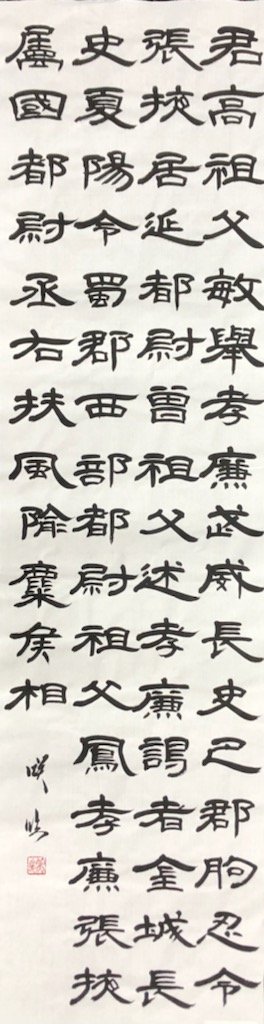 君高祖父敏舉孝廉武威長史巴郡朐忍令
張掖居延都尉曾祖父述孝廉謁者金城長
史夏陽令蜀郡西部都尉祖父鳳孝廉張掖
屬國都尉丞右扶風隃麋侯相
臨